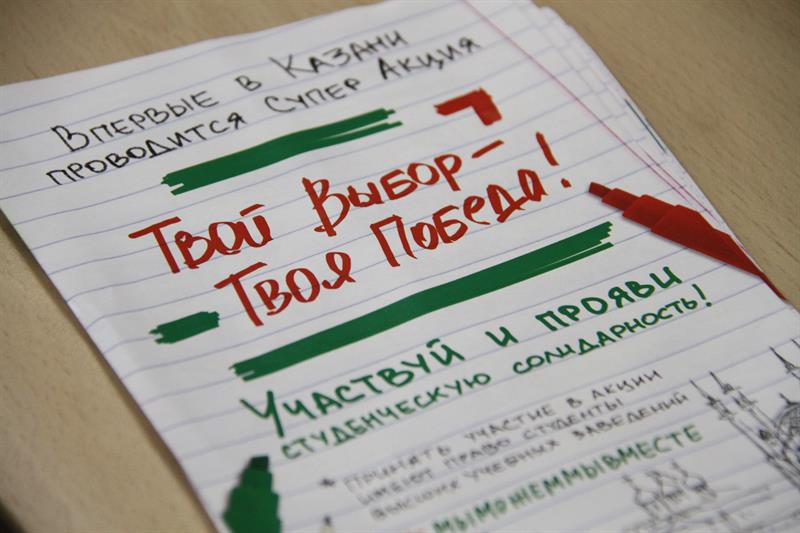 Впервые в Казани
проводится Супер Акция
Твой Выбор –
Твоя Победа!
Участвуй и прояви
студенческую солидарность!
* Принять участие в акции
имеют право студенты
высших учебных заведений
#мыможеммывместе